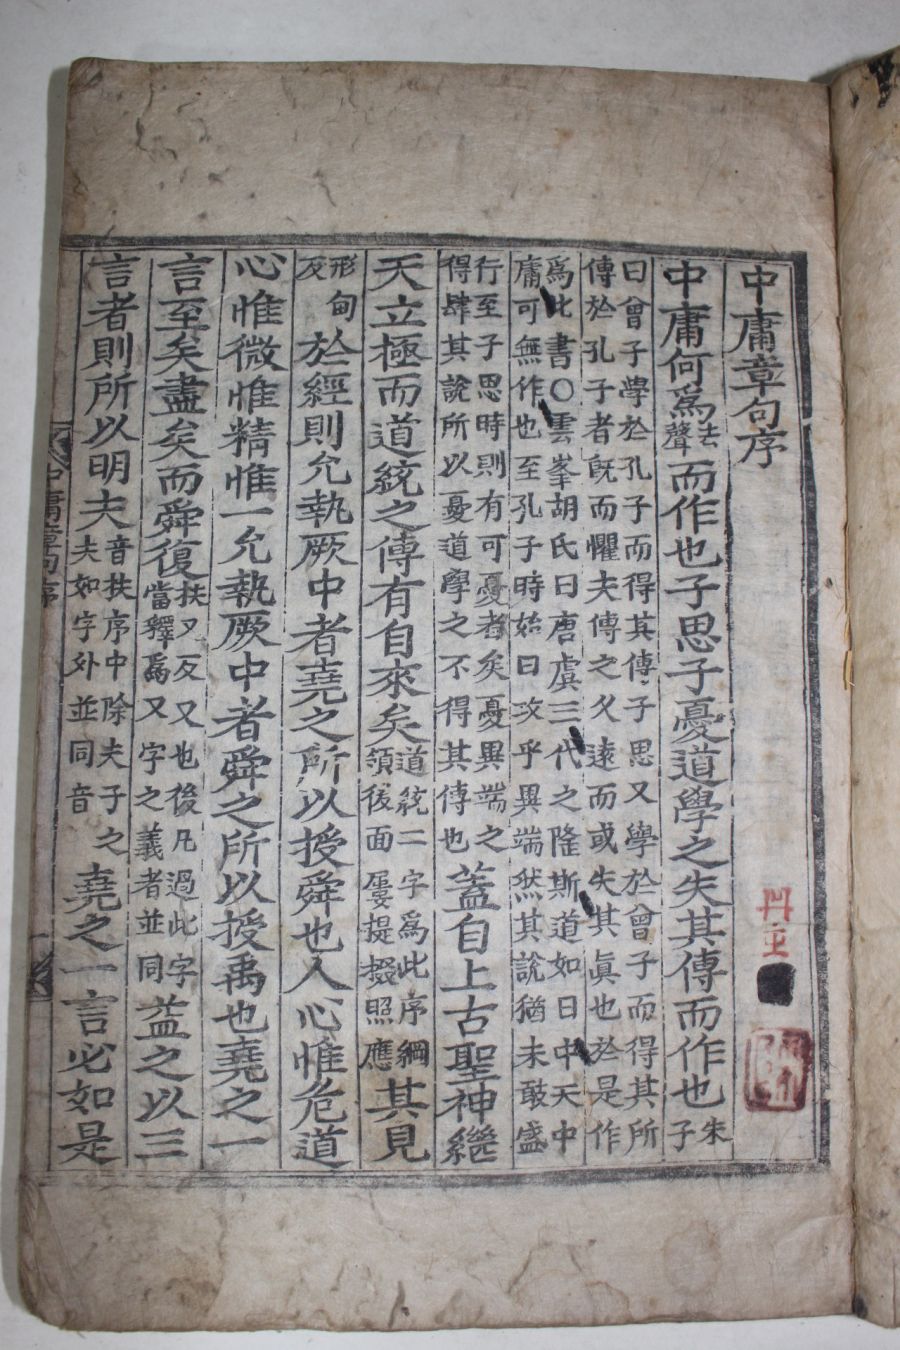 中庸章句序
中庸何爲去聲而作也子思子憂道學之失其傳而作也朱子
曰曾子學於孔子而得其傳子思又學於曾子而得其所
傳於孔子者旣而懼夫傳之久遠而或失其眞也於是作
爲此書○雲峯胡氏曰唐虞三代之隆斯道如日中天中
庸可無作也至孔子時始曰攻乎異端然其說猶未敢盛
行至子思時則有可憂者矣憂異端之得肆其說所以憂道學之不得其傳也蓋自上古聖神繼
天立極而道統之傳有自來矣道統二字爲此序綱領後面屢提掇照應其見
形甸反於經則允執厥中者堯之所以授舜也人心惟危道
心惟微惟精惟一允執厥中者舜之所以授禹也堯之一
言至矣盡矣而舜復扶又反又也後凡過此字當釋爲又字之義者並同益之以三
言者則所以明夫音扶序中除夫子之夫如字外並同音堯之一言必如是
中庸章句序